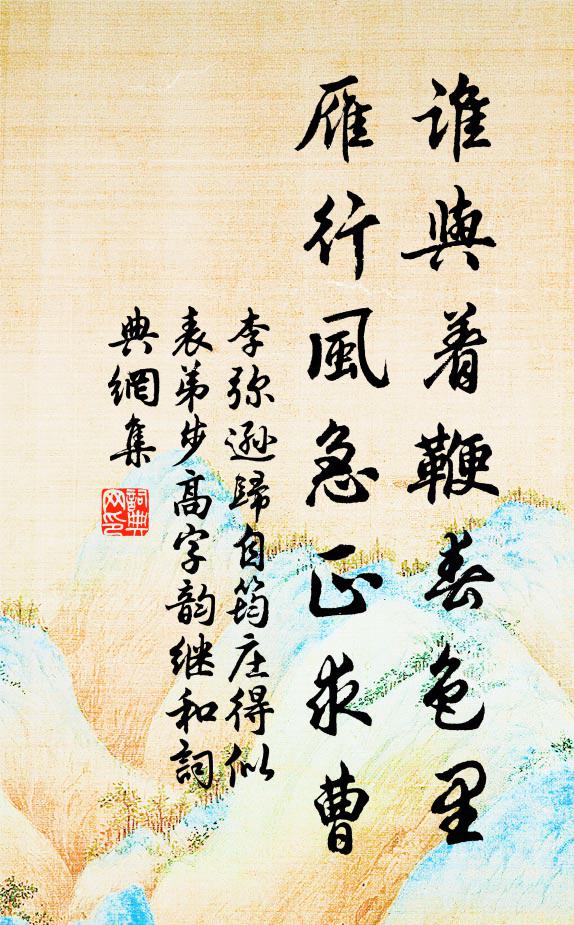 谁與着鞭春色里
雁行風急正求曹
李弥遜歸自筠庄得似
表弟步高字韵继和詞
典網集
詞典
网印